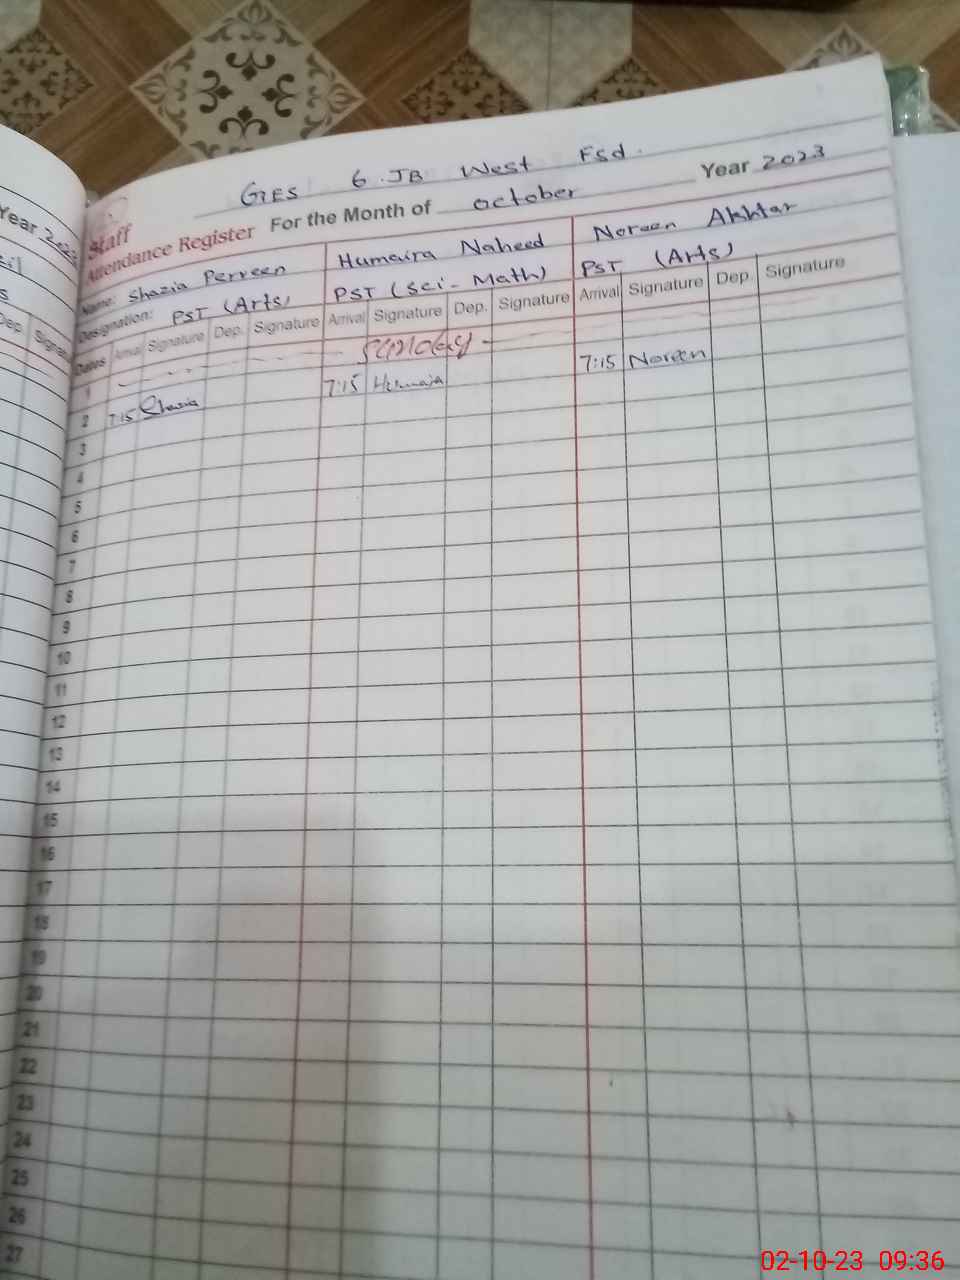 GES 6.JB West Fsd.
Staff
Attendance Register For the Month of October Year 2023
Name: Shazia Perveen Humaira Naheed Noreen Akhtar
Designation: PST (Arts) PST (Sci-Math) PST (Arts)
Dates Arrival Signature Dep. Signature Arrival Signature Dep. Signature Arrival Signature Dep. Signature
1 Sunday
2 7:15 Shazia 7:15 Humaira 7:15 Noreen
3
4
5
6
7
8
9
10
11
12
13
14
15
16
17
18
19
20
21
22
23
24
25
26
27
Year 2023
Dep. Signature
02-10-23 09:36